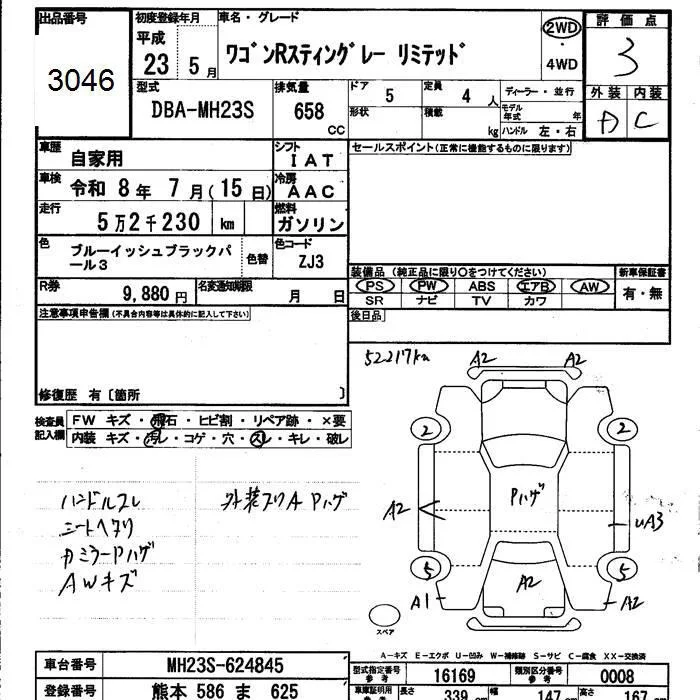 出品番号 初度登録年月 車名・グレード 評価点
3046 平成 23 5月 ワゴンRスティングレー リミテッド 2WD・4WD 3
型式 排気量 ドア 5 定員 4人 ディーラー・並行 外装 内装
DBA-MH23S 658 CC 形状 積載 kg モデル年式 年 ハンドル 左・右 C
車歴 自家用 シフト IAT セールスポイント(正常に機能するものに限ります)
車検 令和 8年 7月(15日) 冷房 AAC
走行 5万2千230 km 燃料 ガソリン
色 ブルーイッシュブラックパール3 色替 色コード ZJ3
装備品(純正品に限り○をつけてください) 新車保証書
R券 9,880円 名変通知期限 月 日 PS PW ABS エアB AW 有・無
SR ナビ TV カワ
注意事項申告欄(不具合内容等は具体的に記入して下さい) 後日品
52217km
修復歴 有〔箇所 〕
検査員記入欄 FW キズ・飛石・ヒビ割・リペア跡・×要
内装 キズ・汚レ・コゲ・穴・スレ・キレ・破レ
ハンドルスレ 外装スリA Pハゲ
シートヘタリ
カミラーPハゲ
AWキズ
A2 A2
2 2
A2 Pハゲ UA3
5 5
A1 A2 A2
スペア
A-キズ E-エクボ U-凹み W-補修跡 S-サビ C-腐食 XX-交換済
車台番号 MH23S-624845 型式指定番号 参考 16169 類別区分番号 参考 0008
登録番号 熊本 586 ま 625 車庫証明用 参考 長さ 339 cm 幅 147 cm 高さ 167 cm